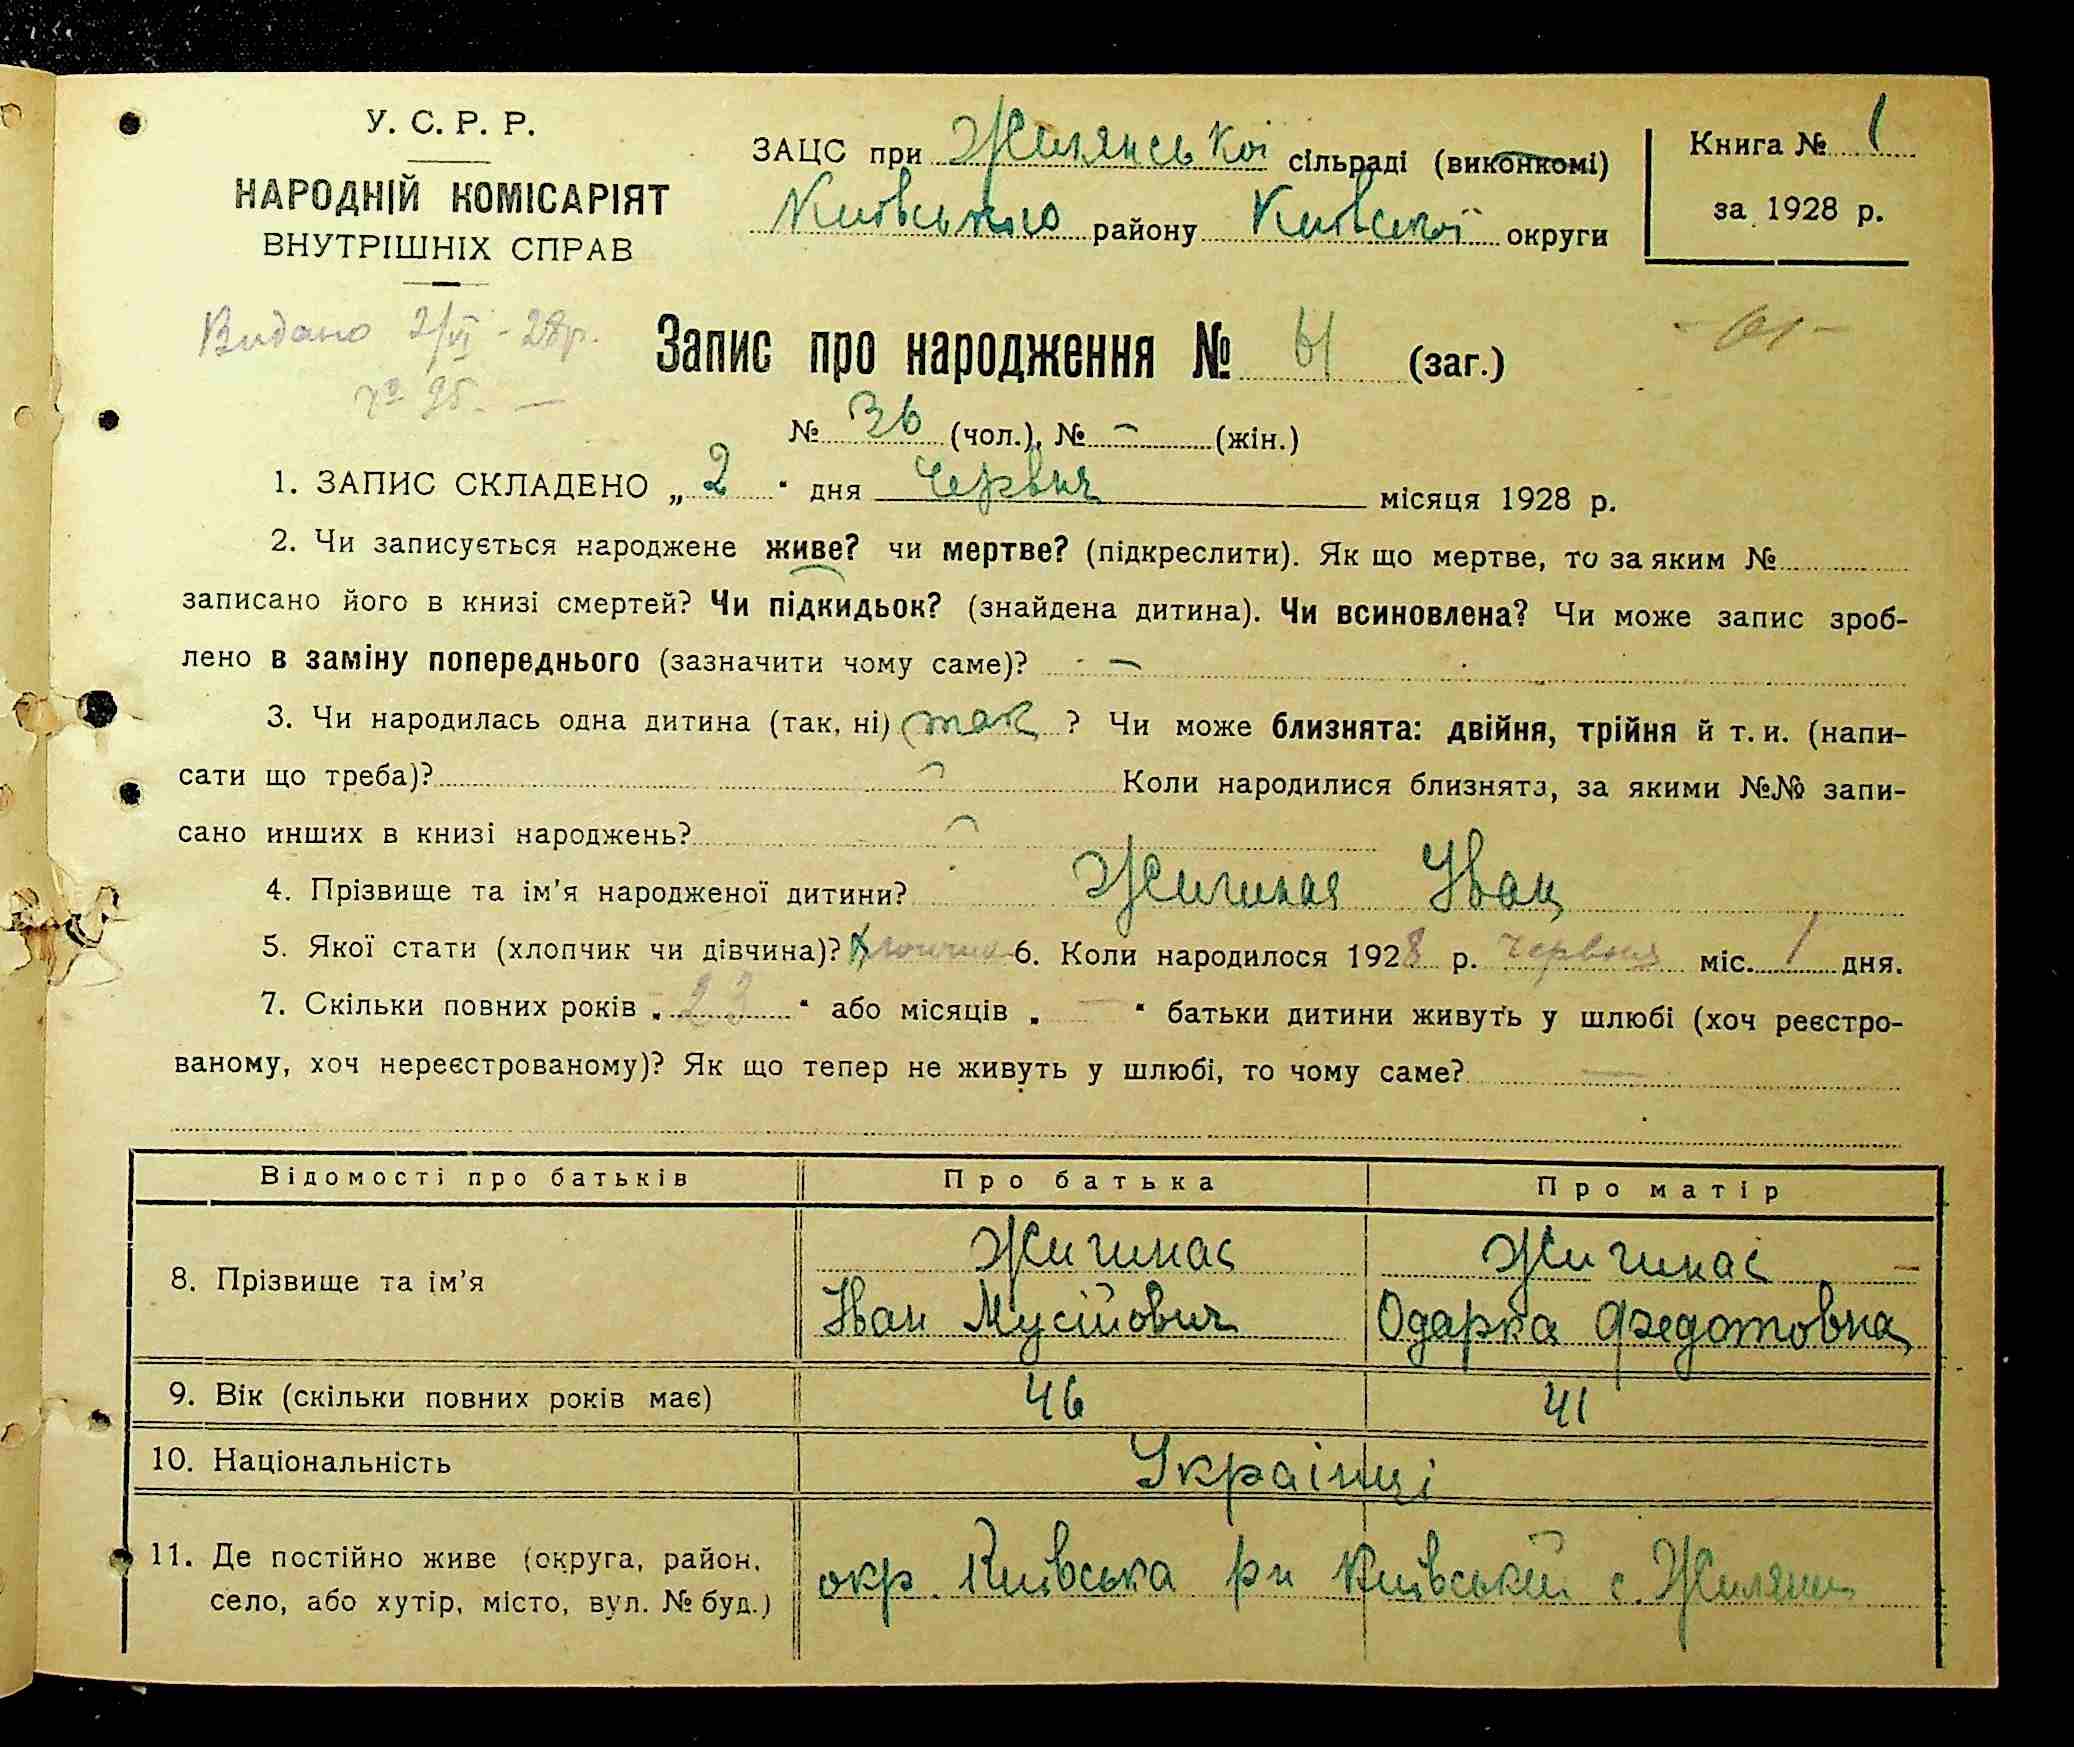 У. С. Р. Р.
НАРОДНІЙ КОМІСАРІЯТ
ВНУТРІШНІХ СПРАВ
ЗАЦС при Жилянської сільраді (виконкомі)
Київського району Київської округи
Книга № 1
за 1928 р.
Видано 2/VI - 28р.
№ 95. —
Запис про народження № 61 (заг.)
- 61 -
№ 36 (чол.), № — (жін.)
1. ЗАПИС СКЛАДЕНО „ 2 " дня Червня місяця 1928 р.
2. Чи записується народжене живе? чи мертве? (підкреслити). Як що мертве, то за яким №
записано його в книзі смертей? Чи підкидьок? (знайдена дитина). Чи всиновлена? Чи може запис зроб-
лено в заміну попереднього (зазначити чому саме)? —
3. Чи народилась одна дитина (так, ні) так ? Чи може близнята: двійня, трійня й т. и. (напи-
сати що треба)? — Коли народилися близнята, за якими №№ запи-
сано инших в книзі народжень? —
4. Прізвище та ім'я народженої дитини? Жигинас Іван
5. Якої стати (хлопчик чи дівчина)? Хлопчик 6. Коли народилося 1928 р. Червня міс. 1 дня.
7. Скільки повних років „ 23 " або місяців „ — " батьки дитини живуть у шлюбі (хоч реєстро-
ваному, хоч нереєстрованому)? Як що тепер не живуть у шлюбі, то чому саме? —
Відомості про батьків Про батька Про матір
8. Прізвище та ім'я
Жигинас Іван Мусійович
Жигинас Одарка Федотовна
9. Вік (скільки повних років має) 46 41
10. Національність Українці
11. Де постійно живе (округа, район,
село, або хутір, місто, вул. № буд.)
окр. Київська рн Київський с. Жиляни